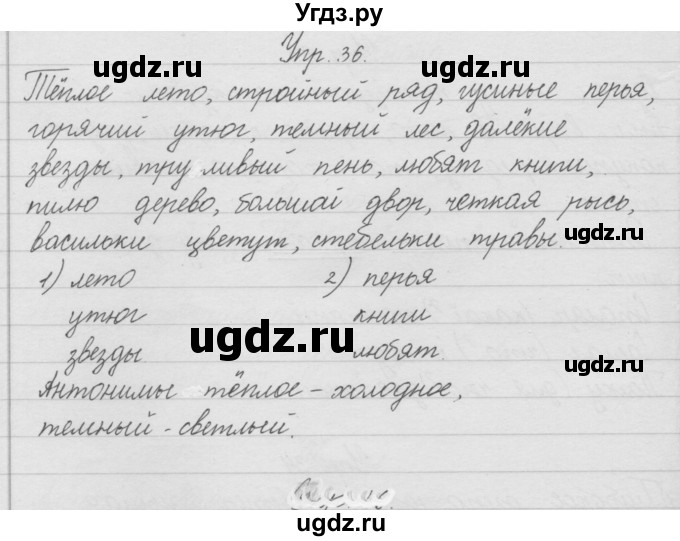 Угдз.ру
Упр. 36.
ugdz.ru
ugdz.ru
Тёплое лето, стройный ряд, гусиные перья,
горячий утюг, темный лес, далёкие
звезды, тру ливый пень, любят книги,
пилю дерево, большой двор, четкая рысь,
ugdz.ru
васильки цветут, стебельки травы.
1) лето 2) перья
утюг книги
ugdz.ru
звезды любят.
ugdz.ru
Антонимы тёплое - холодное,
темный - светлый.
ugdz.ru
ugdz.ru